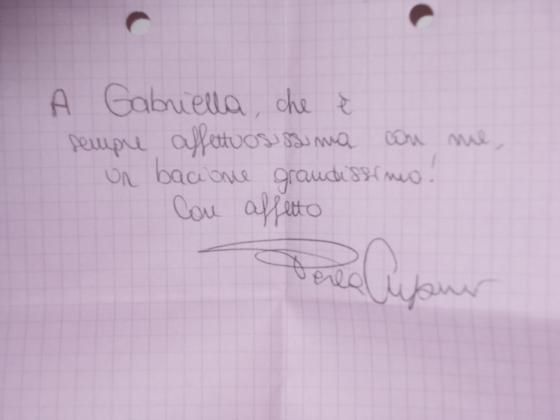 A Gabriella, che è
sempre affettuosissima con me,
un bacione grandissimo!
Con affetto